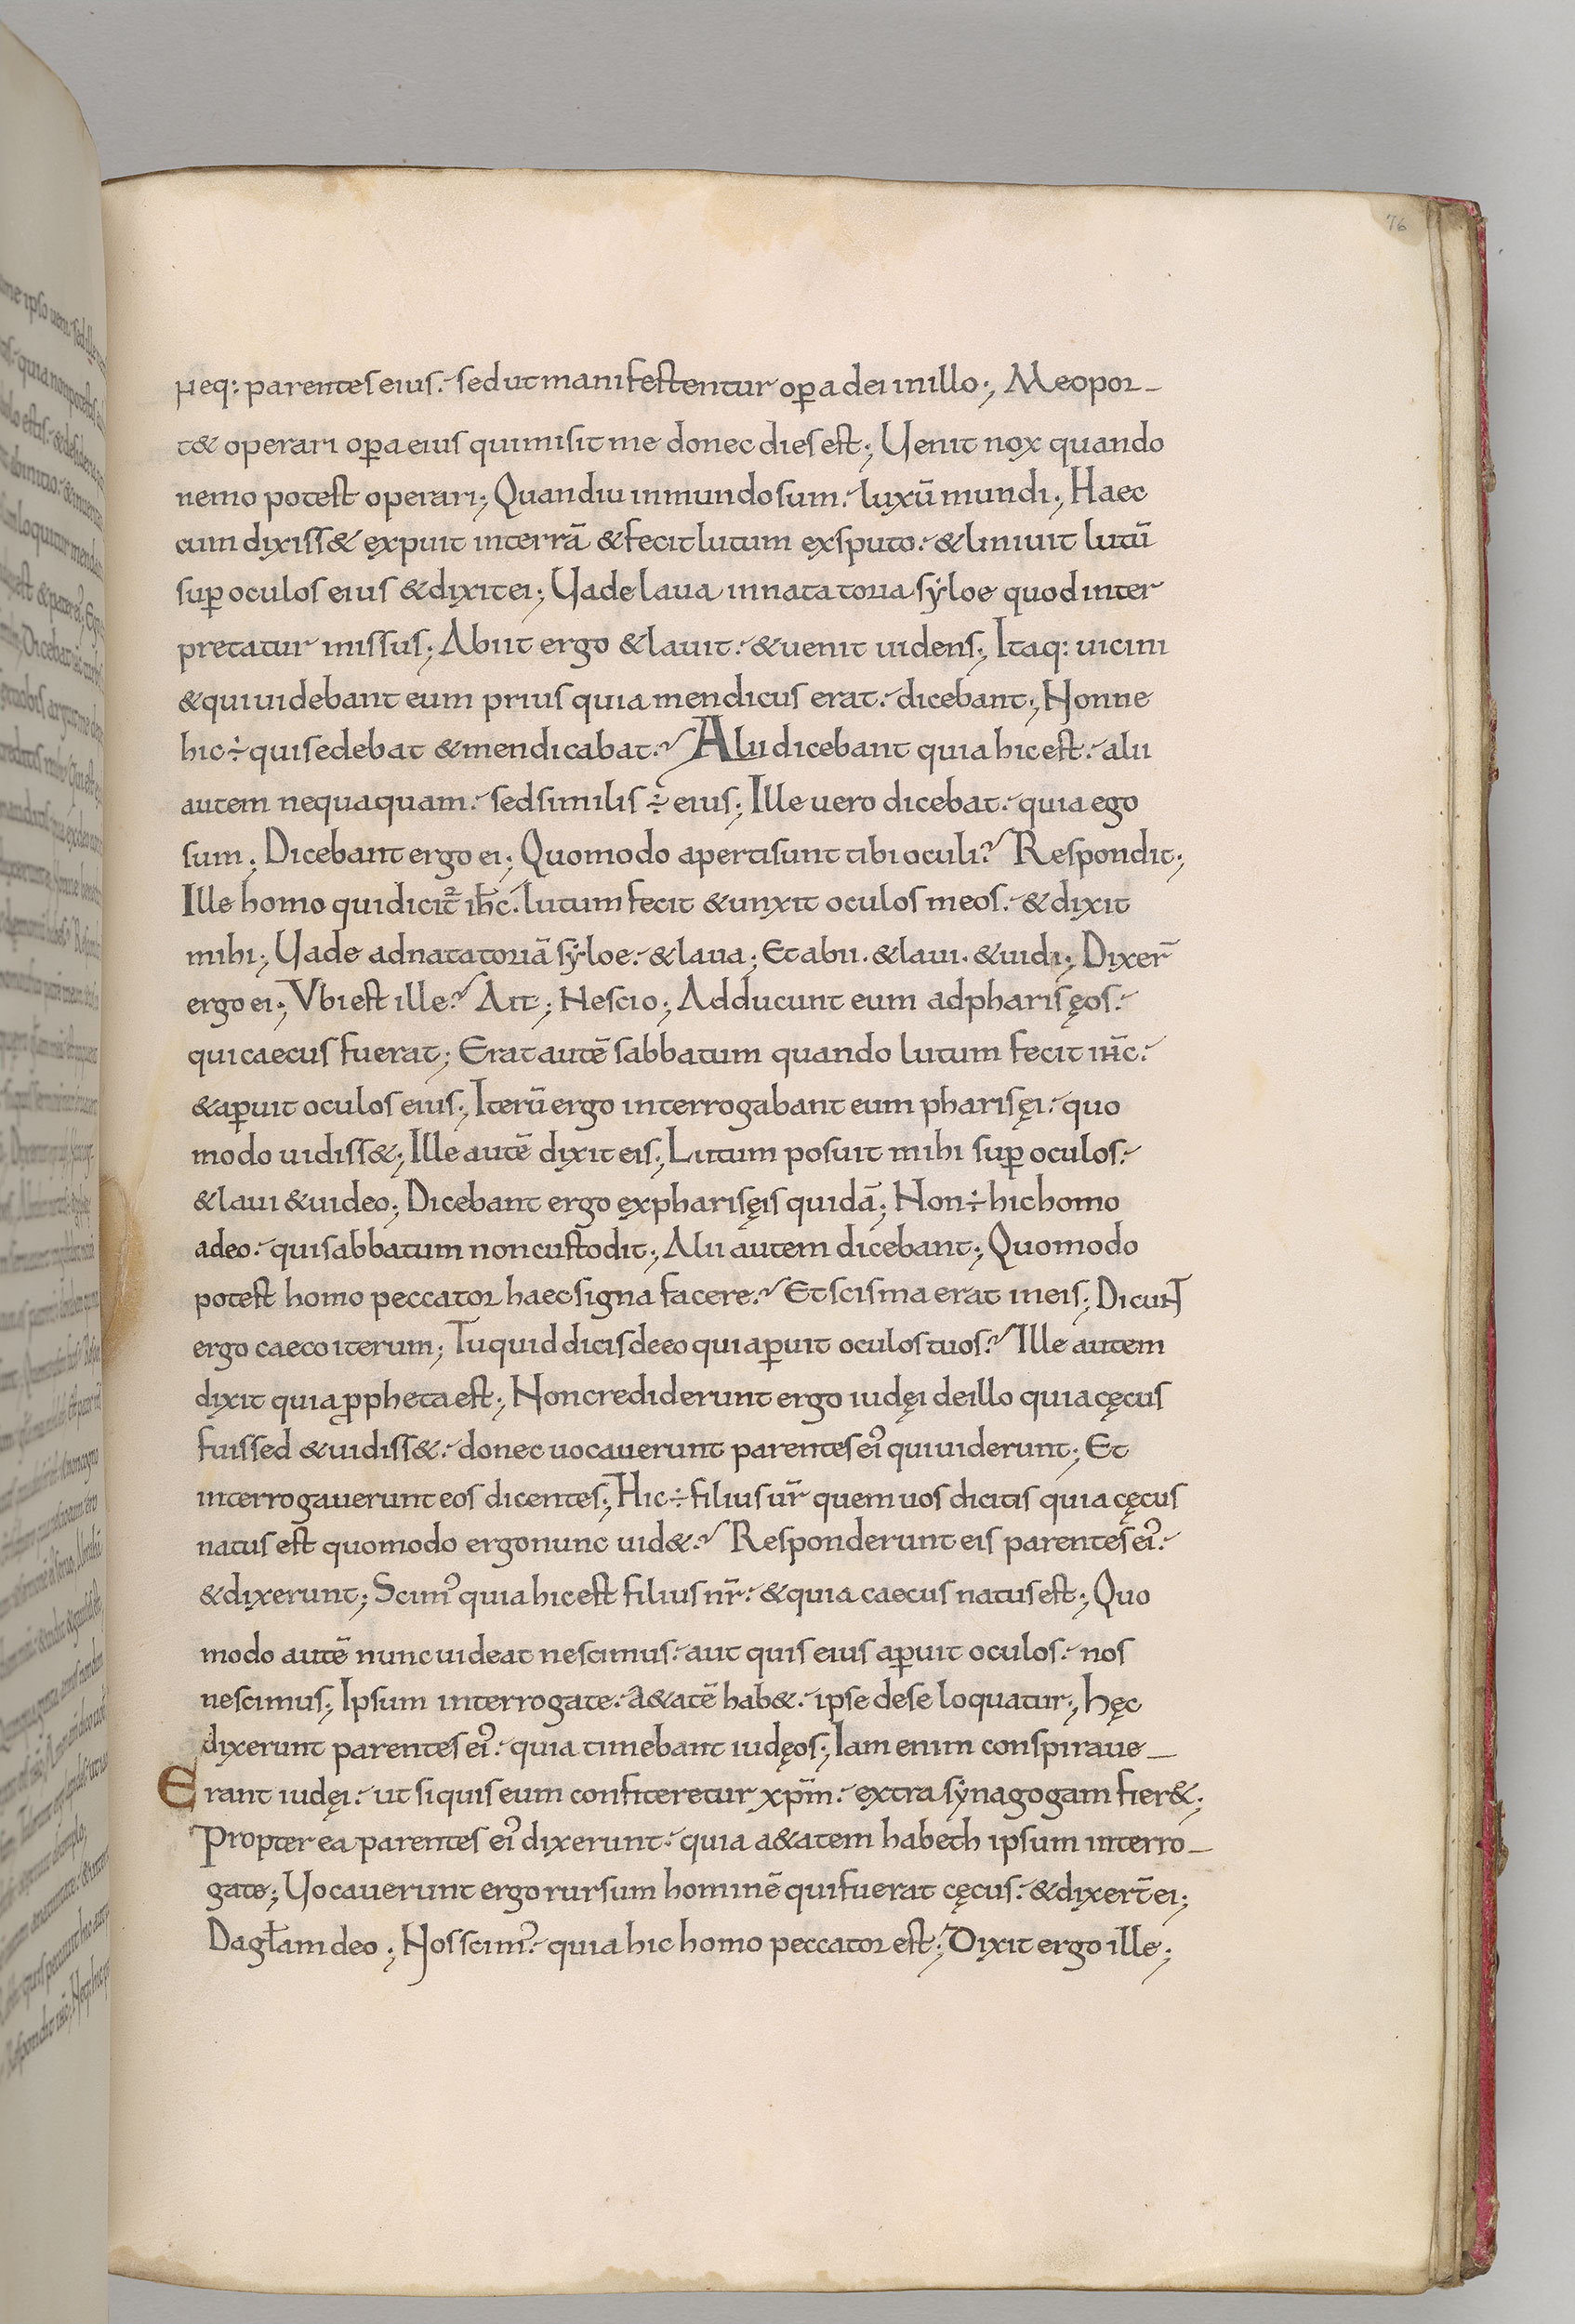 76
neq: parentes eius. sed ut manifestentur oꝑa dei in illo; Me opor-
t& operari oꝑa eius qui misit me donec dies est; Uenit nox quando
nemo potest operari; Quandiu in mundo sum. lux sū mundi; Haec
cum dixiss& exspuit in terrā & fecit lutum ex sputo. & liniuit lutū
suꝑ oculos eius & dixit ei; Uade laua in natatoria syloe quod inter
pretatur missus; Abiit ergo & lauit. & uenit uidens; Itaq: uicini
& qui uidebant eum prius quia mendicus erat. dicebant; Nonne
hic ÷ qui sedebat & mendicabat? Alii dicebant quia hic est. alii
autem nequaquam. sed similis ÷ eius; Ille uero dicebat. quia ego
sum; Dicebant ergo ei; Quomodo aperti sunt tibi oculi? Respondit;
Ille homo qui dicit᷑ ih̄c. lutum fecit & unxit oculos meos. & dixit
mihi; Uade ad natatoriā syloe. & laua; Et abii. & laui. & uidi; Dixer̄
ergo ei; Vbi est ille? Ait; Nescio; Adducunt eum ad pharisęos.
qui caecus fuerat; Erat autē sabbatum quando lutum fecit ih̄c.
& aꝑuit oculos eius; Iterū ergo interrogabant eum pharisęi. quo
modo uidiss&; Ille autē dixit eis; Lutum posuit mihi suꝑ oculos.
& laui & uideo; Dicebant ergo ex pharisęis quidā; Non ÷ hic homo
a deo. qui sabbatum non custodit; Alii autem dicebant; Quomodo
potest homo peccator haec signa facere? Et scisma erat in eis; Dicunt
ergo caeco iterum; Tu quid dicis de eo qui aꝑuit oculos tuos? Ille autem
dixit quia ꝓpheta est; Non crediderunt ergo iudęi de illo quia cęcus
fuissed & uidiss&. donec uocauerunt parentes ei᾿ qui uiderunt; Et
interrogauerunt eos dicentes; Hic ÷ filius ur̄ quem uos dicitis quia cęcus
natus est quomodo ergo nunc uid&? Responderunt eis parentes ei᾿.
& dixerunt; Scim᾿ quia hic est filius nr̄. & quia caecus natus est; Quo
modo autē nunc uideat nescimus. aut quis eius aꝑuit oculos. nos
nescimus; Ipsum interrogate. a&atē hab&. ipse de se loquatur; hęc
dixerunt parentes ei᾿. quia timebant iudęos; Iam enim conspiraue-
Erant iudęi. ut si quis eum confiteretur xp̄m. extra synagogam fier&;
Propterea parentes ei᾿ dixerunt. quia a&atem habeth ipsum interro-
gate; Uocauerunt ergo rursum hominē qui fuerat cęcus. & dixert̄ ei;
Da gl̄am deo; Nos scim᾿. quia hic homo peccator est; Dixit ergo ille;